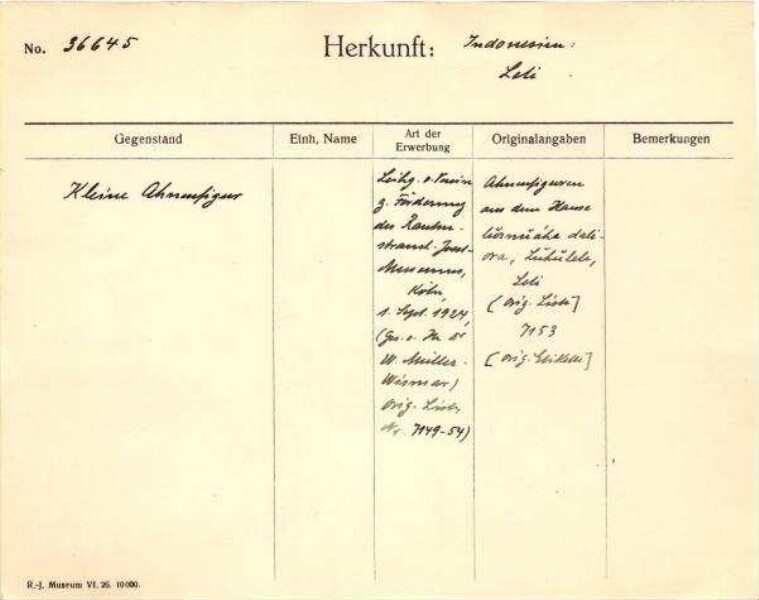 No. 36645 Herkunft: Indonesien:
Leti
Gegenstand
Einh. Name
Art der
Erwerbung
Originalangaben
Bemerkungen
Kleine Ahnenfigur
Leihg. v. Verein
z. Förderung
des Rauten-
strauch-Joest-
Museums,
Köln,
1. Sept. 1924,
(Ges. v. Hr. Dr
W. Müller-
Wismar)
orig. Liste
Nr. 7149-54)
Ahnenfiguren
aus dem Hause
dali-
ora, Lŭhŭlele,
Leti
(orig. Liste]
7153
[orig. Etikett]
R.-J. Museum VI. 26. 10000.